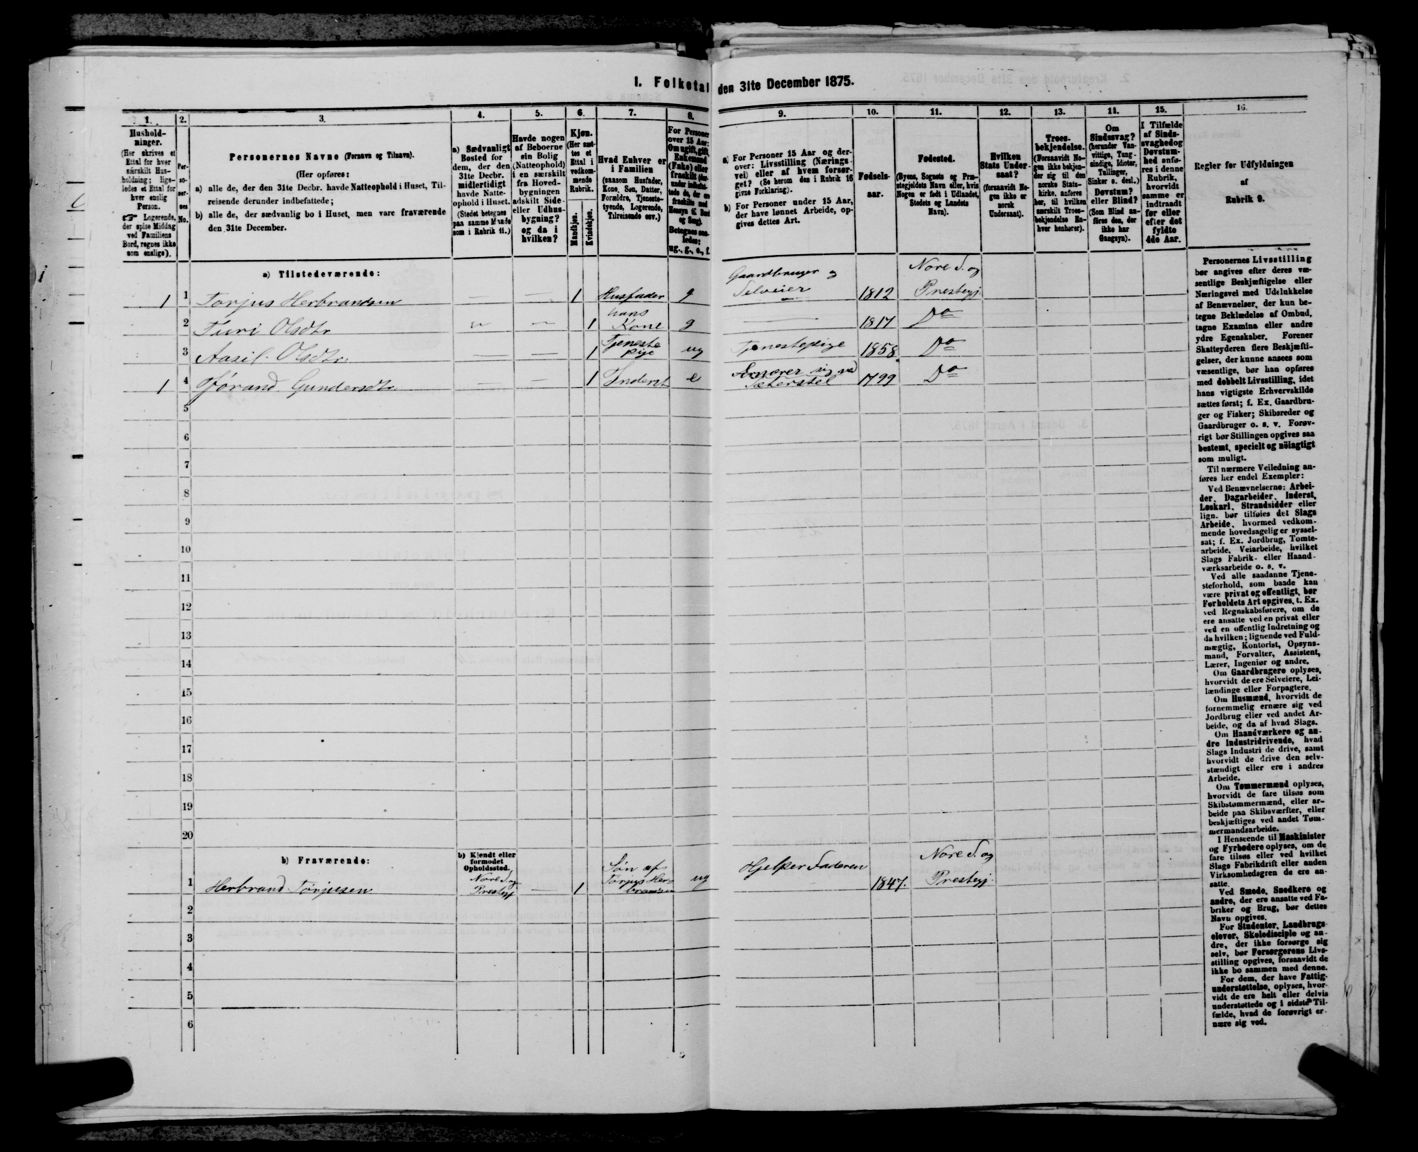 I. Folketal den 31te December 1875.
1. 2. 3. 4. 5. 6. 7. 8. 9. 10. 11. 12. 13. 14. 15. 16.
Hushold-
ninger.
(Her skrives et
Ettal for hver
særskilt Hus-
holdning; lige-
ledes et Ettal for
hver enslig
Person.
☞ Logerende,
der spise Middag
ved Familiens
Bord, regnes ikke
som enslige).
Per-
so-
ner-
nes
No.
Personernes Navne (Fornavn og Tilnavn).
(Her opføres:
a) alle de, der den 31te Decbr. havde Natteophold i Huset, Til-
reisende derunder indbefattede;
b) alle de, der sædvanlig bo i Huset, men vare fraværende
den 31te December.
a) Sædvanligt
Bosted for
dem, der den
31te Decbr.
midlertidigt
havde Natte-
ophold i Huset.
(Stedet betegnes
paa samme Maade
som i Rubrik 11.)
Havde nogen
af Beboerne
sin Bolig
(Natteophold)
i en særskilt
fra Hoved-
bygningen
adskilt Side-
eller Udhus-
bygning?
og da i
hvilken?
Kjøn.
(Her ansæt-
tes et
Ettal i
vedkom-
mende
Rubrik.
Mandkjøn.
Kvindekjøn.
Hvad Enhver er
i Familien
(saasom Husfader,
Kone, Søn, Datter,
Forældre, Tjeneste-
tyende, Logerende,
Tilreisende osv.)
For Personer
over 15 Aar:
Om ugift, gift,
Enkemand
(Enke) eller
fraskilt
Betegnes saa-
ledes:
ug., g., e., f.
a) For Personer 15 Aar og der-
over: Livsstilling (Nærings-
vei) eller af hvem forsør-
get? (Se herom den i Rubrik 16
givne Forklaring).
b) For Personer under 15 Aar,
der have lønnet Arbeide, op-
gives dettes Art.
Fødsels-
aar.
Fødested.
(Byens, Sognets og Præ-
stegjeldets Navn eller, hvis
Nogen er født i Udlandet,
Stedets og Landets
Navn).
Hvilken
Stats Under-
saat?
(forsaavidt No-
gen ikke er
norsk
Undersaat).
Troes-
bekjendelse.
(Forsaavidt No-
gen ikke bekjen-
der sig til den
norske Stats-
kirke, anføres
her, til hvilken
særskilt Troes-
bekjendelse En-
hver henhører).
Om
Sindssvag?
(herunder Van-
vittige, Tung-
sindige, Idioter,
Tullinger,
Sinker o. desl.)
Døvstum?
eller Blind?
(Som Blind an-
føres den, der
ikke har
Gangsyn).
I Tilfælde
af Sinds-
svaghed og
Døvstum-
hed anfø-
res i denne
Rubrik,
hvorvidt
samme er
indtraadt
før eller
efter det
fyldte
4de Aar.
Regler for Udfyldningen
af
Rubrik 9.
a) Tilstedeværende:
1 1 Torjus Herbrandsen — — 1 Husfader g Gaardbruger og Selveier 1812 Nore S. og Prestegj
2 Turi Olsdtr 1 hans Kone g — 1817 Do
3 Aasil Olsdtr — — 1 Tjeneste pige ug Tjenestepige 1858 Do
1 4 Jørand Gundersdtr — — 1 Inderst e 1799 Do
5
6
7
8
9
10
11
12
13
14
15
16
17
18
19
20
b) Fraværende:
b) Kjendt eller
formodet
Opholdssted.
1 Herbrand Torjusen Nore S. og Prestegj — 1 Søn af Torjus Herbrandsen ug Hjelper Faderen 1847. Nore S. og Prestegj
2
3
4
5
6
Personernes Livsstilling
bør angives efter deres væ-
sentlige Beskjæftigelse eller
Næringsvei med Udelukkelse
af Benævnelser, der kun be-
tegne Bekledelse af Ombud,
tagne Examina eller andre
ydre Egenskaber. Forener
Skatteyderen flere Beskjæfti-
gelser, der kunne ansees som
væsentlige, bør han opføres
med dobbelt Livsstilling, idet
hans vigtigste Erhvervskilde
sættes først; f. Ex. Gaardbru-
ger og Fisker; Skibsreder og
Gaardbruger o. s. v. Forøv-
rigt bør Stillingen opgives saa
bestemt, specielt og nøiagtigt
som muligt.
Til nærmere Veiledning an-
føres her endel Exempler:
Ved Benævnelserne: Arbei-
der, Dagarbeider, Inderst,
Løskarl, Strandsidder eller
lign. bør tilføies det Slags
Arbeide, hvormed vedkom-
mende hovedsagelig er syssel-
sat; f. Ex. Jordbrug, Tomte-
arbeide, Veiarbeide, hvilket
Slags Fabrik- eller Haand-
værksarbeide o. s. v.
Ved alle saadanne Tjene-
steforhold, som baade kan
være privat og offentligt, bør
Forholdets Art opgives, t. Ex.
ved Regnskabsførere, om de
ere ansatte ved en privat eller
ved en offentlig Indretning og
da hvilken; lignende ved Fuld-
mægtig, Kontorist, Opsyns-
mand, Forvalter, Assistent,
Lærer, Ingeniør og andre.
Om Gaardbrugere oplyses,
hvorvidt de ere Selveiere, Lei-
lændinge eller Forpagtere.
Om Husmænd, hvorvidt de
fornemmelig ernære sig ved
Jordbrug eller ved andet Ar-
beide, og da af hvad Slags.
Om Haandværkere og an-
dre Industridrivende, hvad
Slags Industri de drive, samt
hvorvidt de drive den selv-
stændigt eller ere i andres
Arbeide.
Om Tømmermænd oplyses,
hvorvidt de fare tilsøs som
Skibstømmermænd, eller ar-
beide paa Skibsværfter, eller
beskjæftiges ved andet Tøm-
mermandsarbeide.
I Henseende til Maskinister
og Fyrbødere oplyses, om de
fare tilsøs eller ved hvilket
Slags Fabrikdrift eller anden
Virksomhedsgren de ere an-
satte.
Ved Smede, Snedkere og
andre, der ere ansatte ved Fa-
briker og Brug, bør dettes
Navn opgives.
For Studenter, Landbrugs-
elever, Skoledisciple og an-
dre, der ikke forsørge sig
selv, bør Forsørgerens Livs-
stilling opgives, forsaavidt de
ikke bo sammen med denne.
For dem, der have Fattig-
understøttelse, oplyses, hvor-
vidt de ere helt eller delvis
understøttede og i sidste Til-
fælde, hvad de forøvrigt er-
nære sig ved.